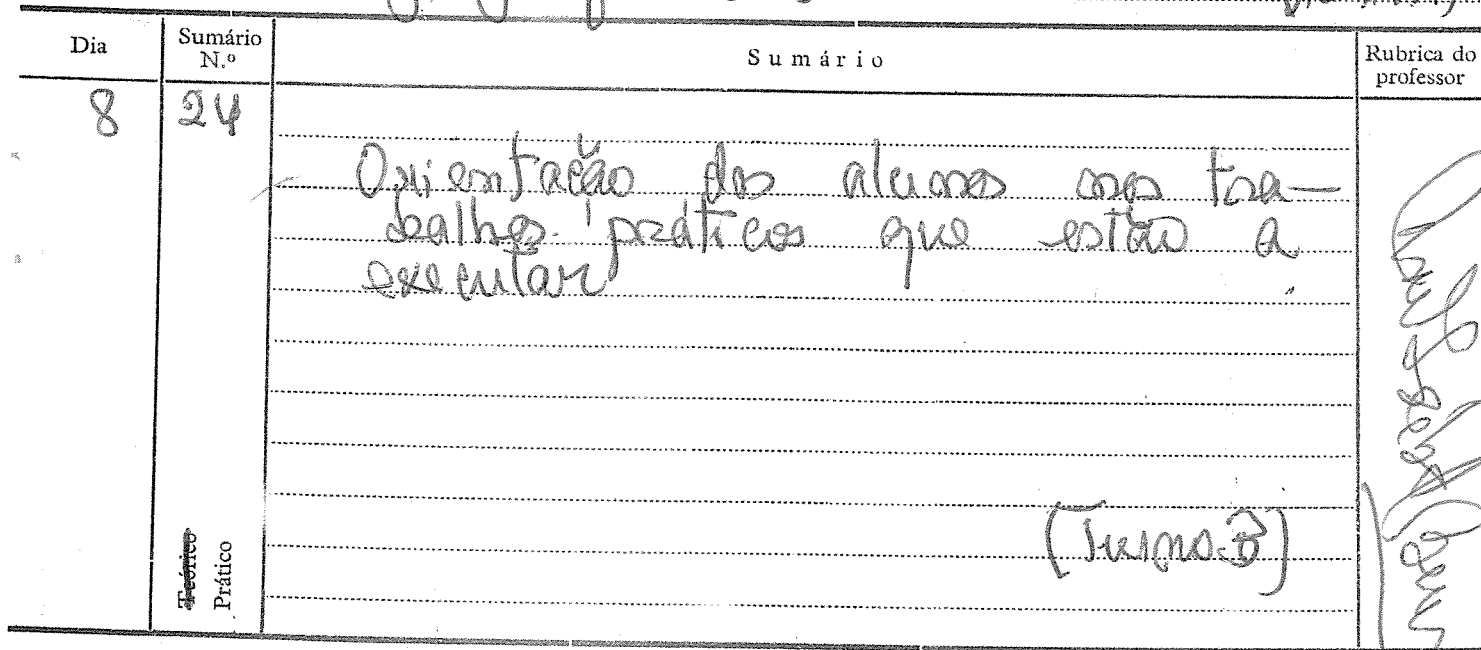 Dia
Sumário
N.º
Sumário
Rubrica do
professor
8
24
Orientação dos alunos nos tra-
balhos práticos que estão a
executar.
(Turno B)
Teórico
Prático